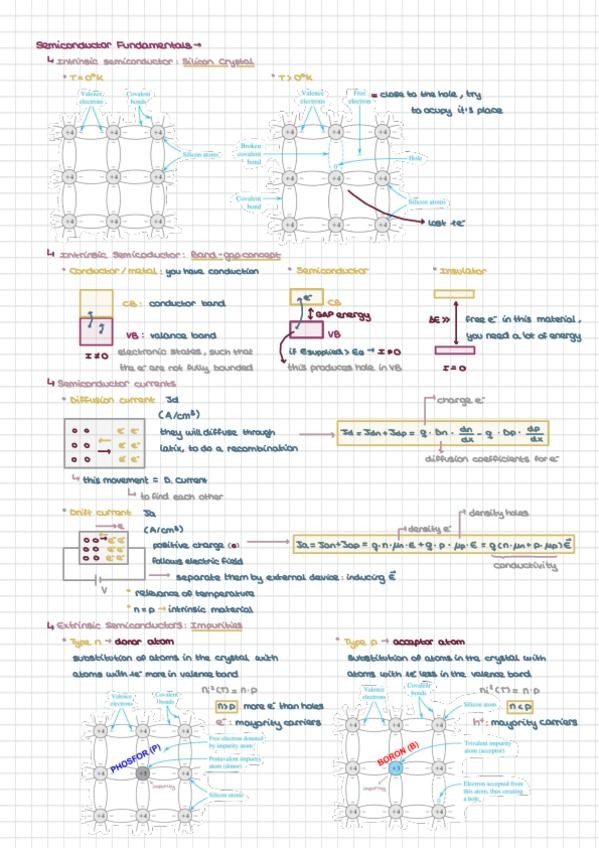 Semiconductor Fundamentals →
↳ Intrinsic semiconductor: Silicon Crystal
• T = 0°K
• T > 0°K
Valence electrons
Covalent bonds
Silicon atoms
Valence electrons
Free electron
= close to the hole, try
to ocupy it's place
Broken covalent bond
Hole
Covalent bond
Silicon atoms
lost 1e⁻
+4 +4 +4 +4 +4 +4
+4 +4 +4 +4 +4 +4
+4 +4 +4 +4 +4 +4
↳ Intrinsic Semicoductor: Band-gap concept
• Conductor / metal: you have conduction
• Semiconductor
• Insulator
CB: conductor band
VB: valance band
I ≠ 0
electronic states, such that
the e⁻ are not fully bounded
e⁻
CB
GAP energy
VB
if Esupplied > EG → I > 0
this produces hole in VB
ΔE >>
free e⁻ in this material,
you need a lot of energy
I = 0
↳ Semiconductor currents
• Diffusion current Jd
(A/cm²)
they will diffuse through
latix, to do a recombination
charge e⁻
Jd = Jdn + Jdp = q · Dn · dn/dx - q · Dp · dp/dx
diffusion coefficients for e⁻
↳ this movement = D. current
↳ to find each other
• Drift current Ja
(A/cm²)
positive charge (⊕)
follows electric field
density e⁻
density holes
Ja = Jan + Jap = q·n·μn·E + q·p·μp·E = q(n·μn + p·μp) E
conductivity
V
→ separate them by external device: inducing E
• relevance of temperature
• n = p → intrinsic material
↳ Extrinsic Semiconductors: Impurities
• Type n → donor atom
substitution of atoms in the crystal with
atoms with 1e⁻ more in valence band
• Type p → acceptor atom
substitution of atoms in the crystal with
atoms with 1e⁻ less in the valence band
Valence electrons
Covalent bonds
ni²(T) = n·p
n>p more e⁻ than holes
e⁻: mayority carriers
Free electron donated by impurity atom
Pentavalent impurity atom (donor)
Silicon atoms
PHOSFOR (P)
impurity
+4 +4 +4
+4 +5 +4
+4 +4 +4
Valence electrons
Covalent bonds
ni²(T) = n·p
n<p
h⁺: mayority carriers
Silicon atom
Trivalent impurity atom (acceptor)
Electron accepted from this atom, thus creating a hole
BORON (B)
impurity
+4 +4 +4
+4 +3 +4
+4 +4 +4